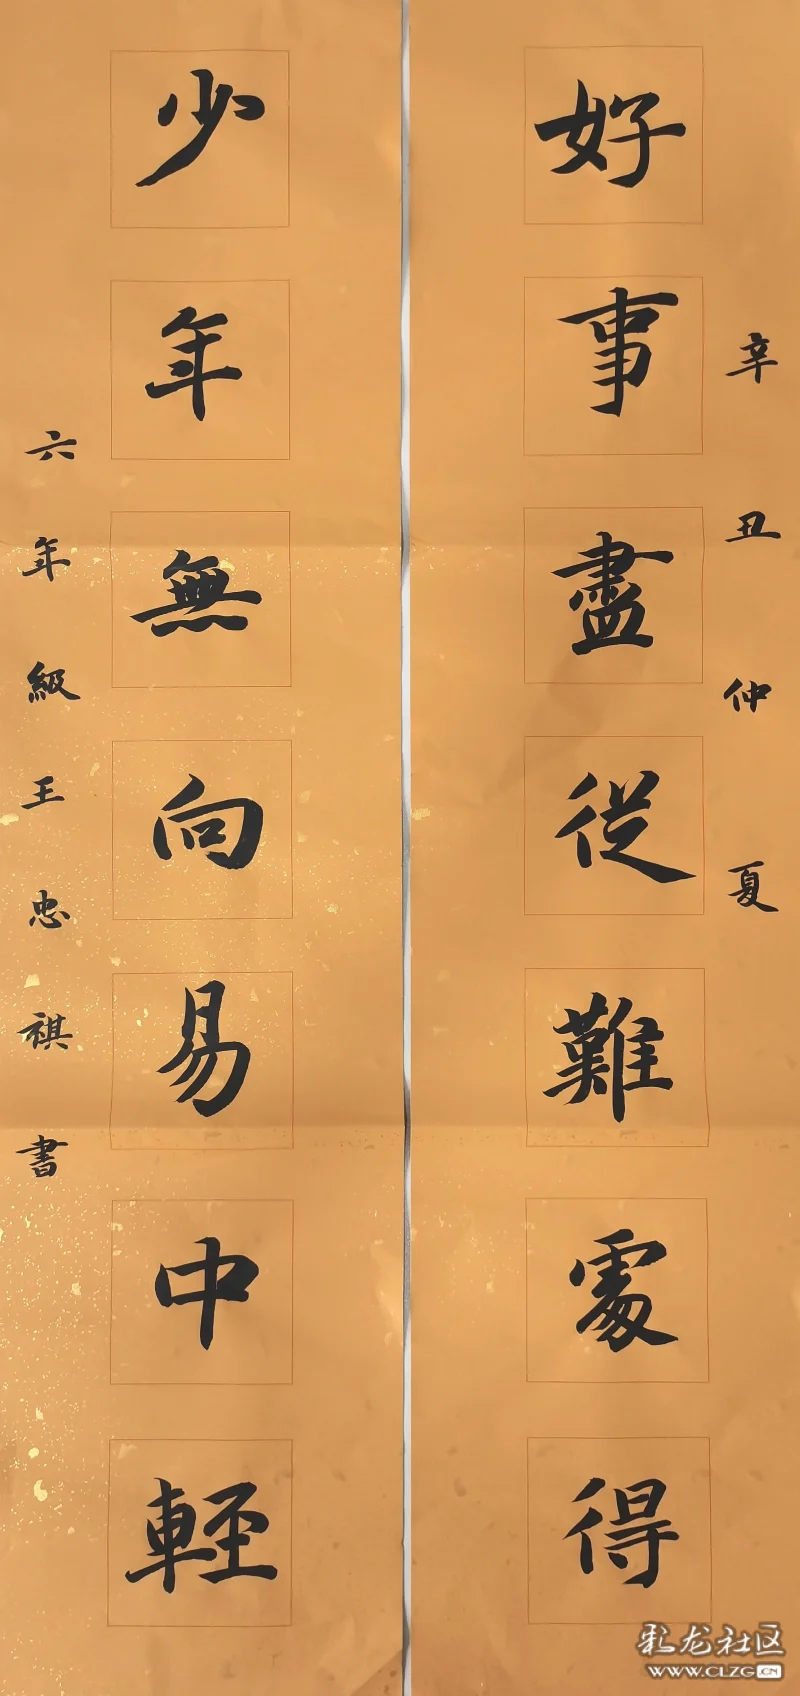 辛丑仲夏
好事盡從難處得
少年無向易中輕
六年級王忠祺書
彩龙社区
WWW.CLZG.CN